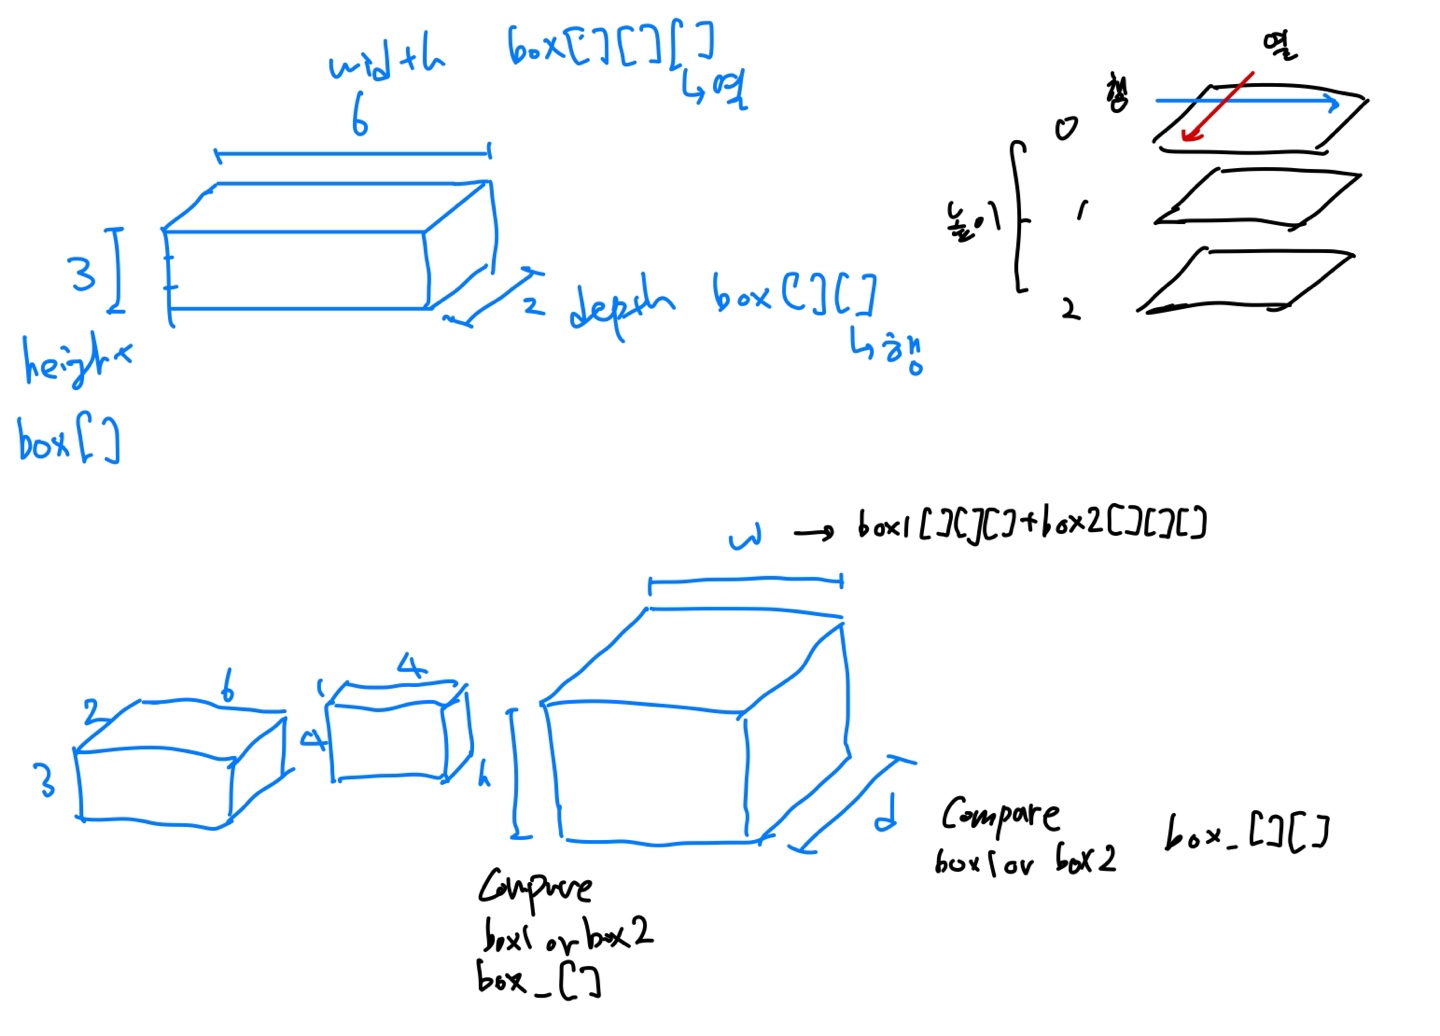 width box[][][]
↳열
6
3
height
box[]
2 depth box[][]
↳행
열
행
0
높이
1
2
w → box1[][][]+box2[][][]
2 6
3
1 4
4
h
d
Compare
box1 or box2
box_[]
Compare
box1 or box2
box_[][]